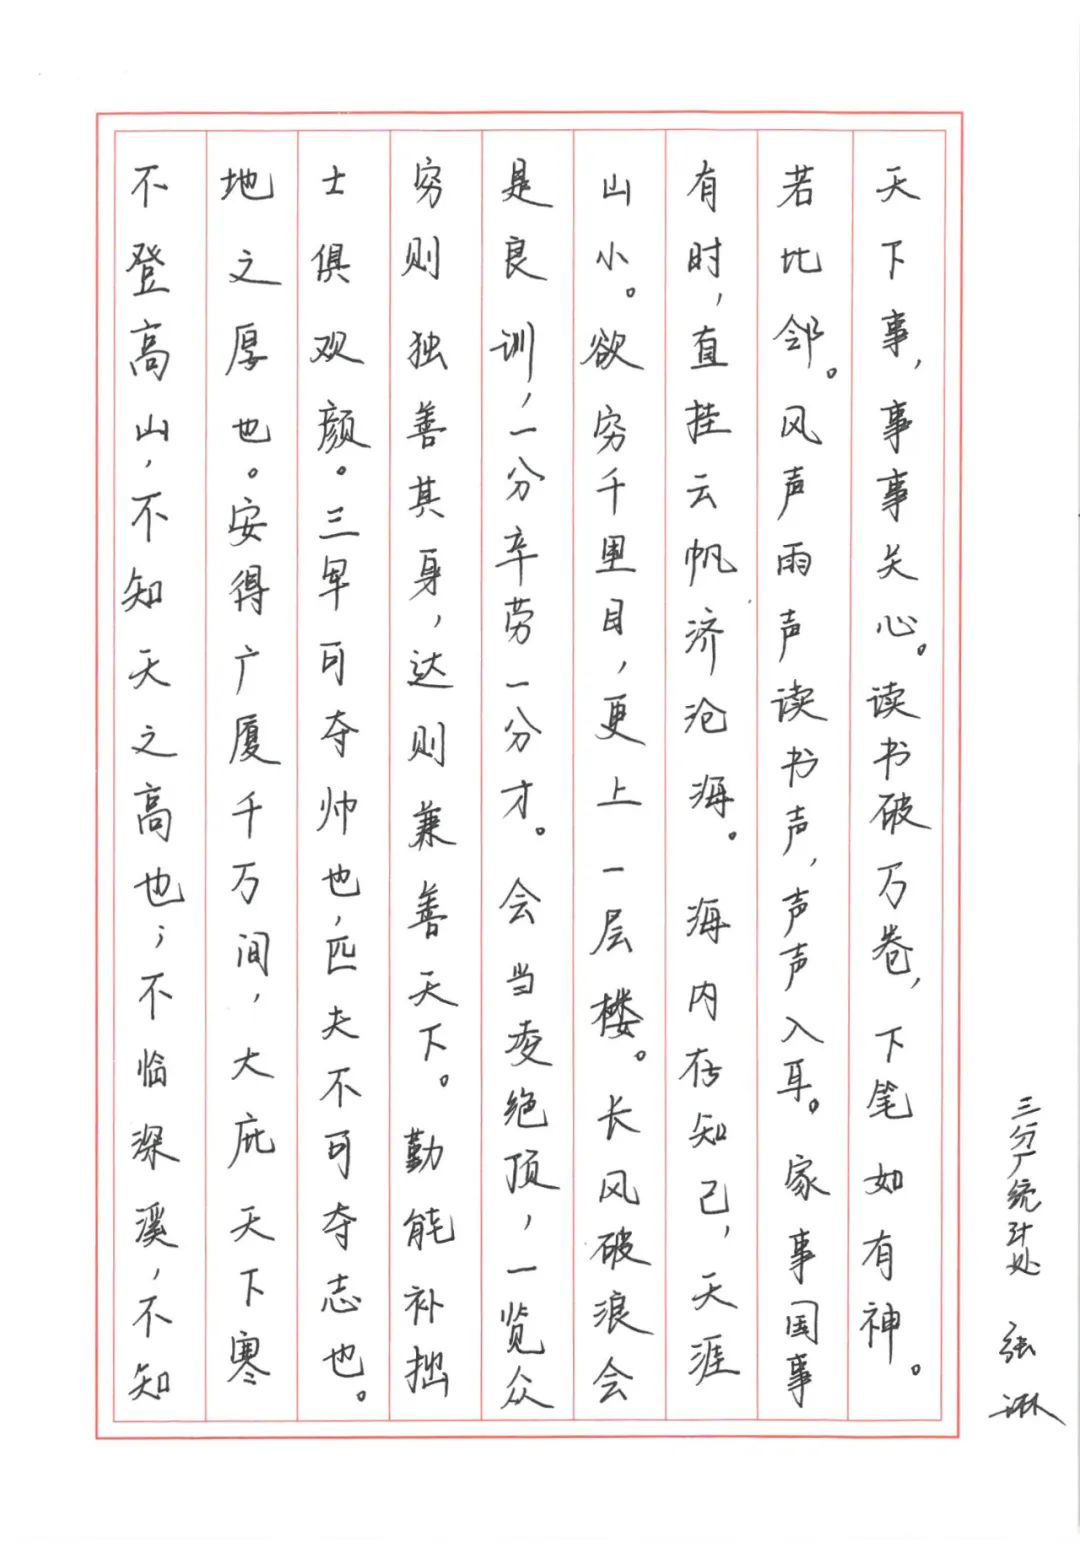 不登高山,不知天之高也;不临深溪,不知
地之厚也。安得广厦千万间,大庇天下寒
士俱观颜。三军可夺帅也,匹夫不可夺志也。
穷则独善其身,达则兼善天下。勤能补拙
是良训,一分辛劳一分才。会当凌绝顶,一览众
山小。欲穷千里目,更上一层楼。长风破浪会
有时,直挂云帆济沧海。海内存知己,天涯
若比邻。风声雨声读书声,声声入耳。家事国事
天下事,事事关心。读书破万卷,下笔如有神。
三分厂统计处 张